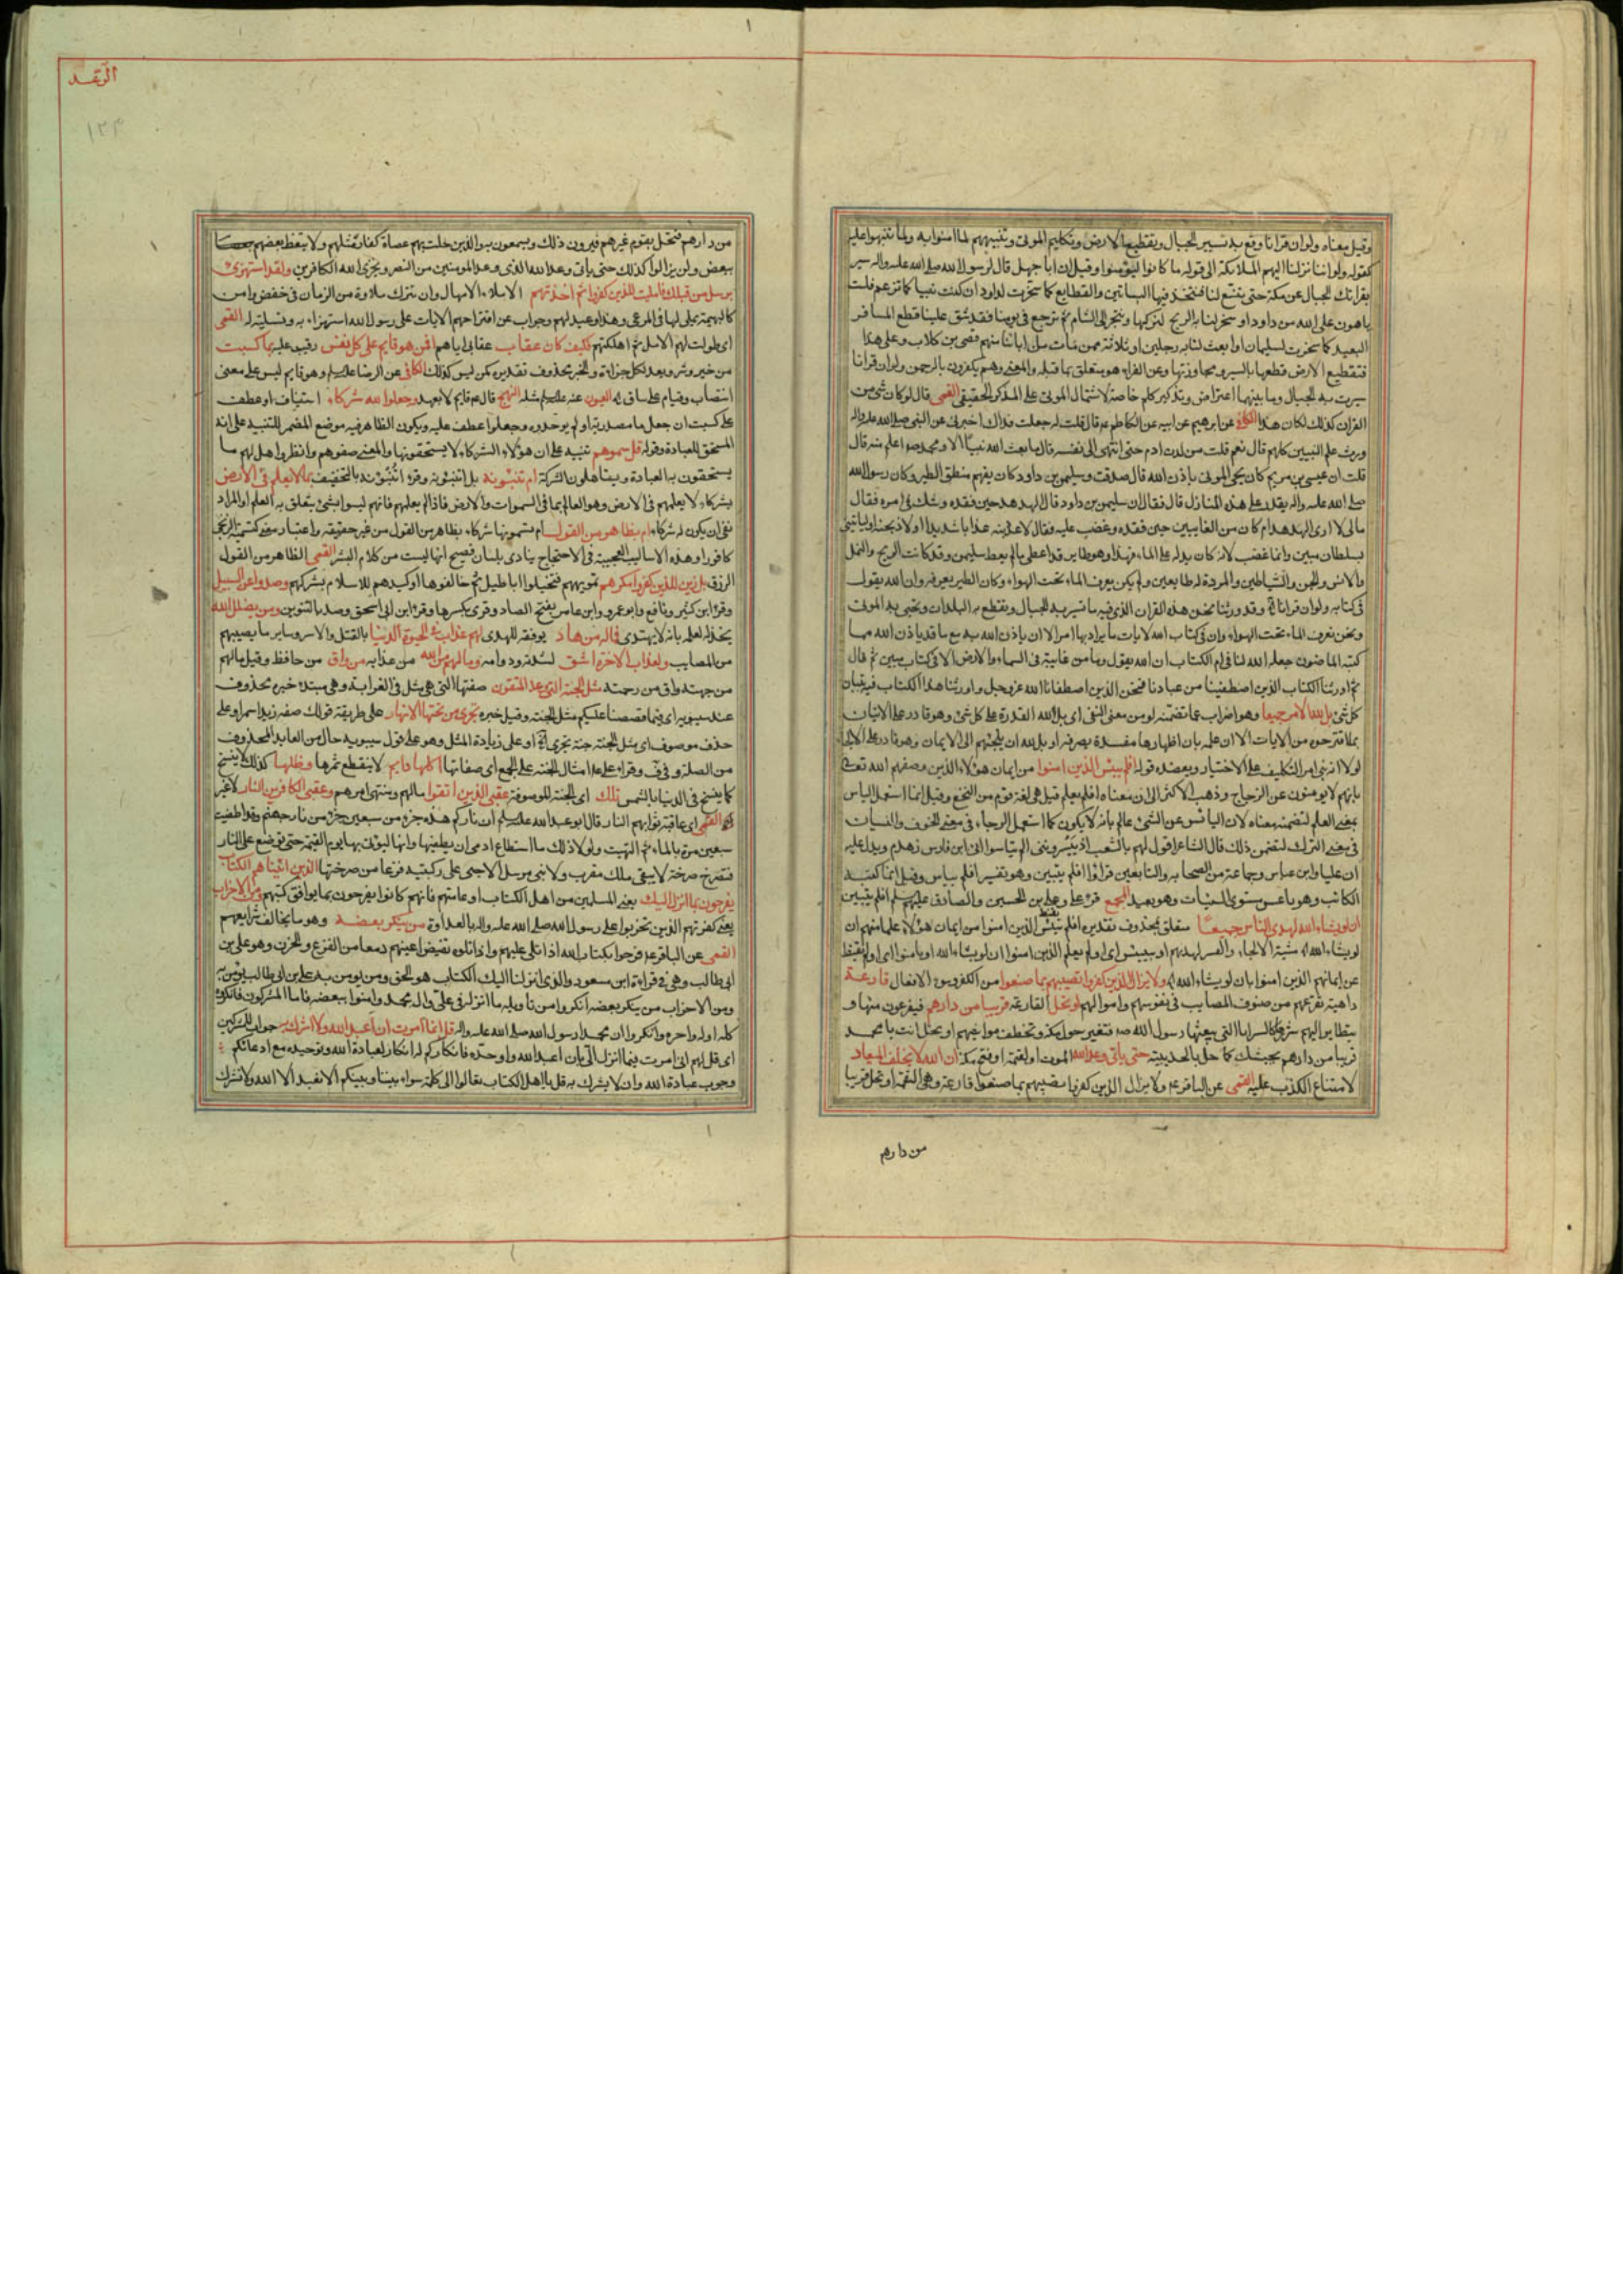 وقيل معناه ولو ان قرانا وقع به تسيير الجبال وتقطيع الارض وتكليم الموتى وتنبيههم لما امنوا به ولما تنبهوا عليه
كقوله ولو اننا نزلنا اليهم الملائكة الى قوله ما كانوا ليؤمنوا وقيل ان ابا جهل قال لرسول الله صلى الله عليه واله سير
بقرانك الجبال عن مكة حتى يتسع لنا فنتخذ فيها البساتين والقطايع كما سخرت لداود ان كنت نبيا كما تزعم فلست
باهون على الله من داود او سخر لنا به الريح لنركبها ونتجر الى الشام ثم نرجع في يومنا فقد شق علينا قطع المسافر
البعيد كما سخرت لسليمان او ابعث لنا به رجلين او ثلاثة ممن مات من ابائنا منهم قصى بن كلاب وعلى هذا
فتقطيع الارض قطعها بالسير ومجاوزتها وعن الفراء هو متعلق بما قبله والمعنى وهم يكفرون بالرحمن ولو ان قرانا
سيرت به الجبال وما بينهما اعتراض وتذكير كلم خاصة لاشتمال الموتى على المذكر الحقيقي القمى قال لو كان شيء من
القران كذلك لكان هذا الكافي عن ابرهيم عن ابيه عن الكاظم ع قال قلت له جعلت فداك اخبرني عن النبي صلى الله عليه واله
ورث علم النبيين كلهم قال نعم قلت من لدن ادم حتى انتهى الى نفسه قال ما بعث الله نبيا الا ومحمد ص اعلم منه قال
قلت ان عيسى بن مريم كان يحيي الموتى باذن الله قال صدقت وسليمن بن داود كان يفهم منطق الطير وكان رسول الله
صلى الله عليه واله يقدر على هذه المنازل قال فقال ان سليمن بن داود قال للهدهد حين فقده وشك في امره فقال
مالي لا ارى الهدهد ام كان من الغايبين حين فقده وغضب عليه فقال لاعذبنه عذابا شديدا او لاذبحنه او لياتيني
بسلطان مبين وانما غضب لانه كان يدله على الماء فهذا وهو طاير قد اعطى مالم يعط سليمن وقد كانت الريح والنمل
والانس والجن والشياطين والمردة له طايعين ولم يكن يعرف الماء تحت الهواء وكان الطير يعرفه وان الله يقول
في كتابه ولو ان قرانا ية وقد ورثنا نحن هذه القران الذي فيه ما تسير به الجبال ويقطع به البلدان وتحيى به الموتى
ونحن نعرف الماء تحت الهواء وان في كتاب الله لايات ما يراد بها امر الا ان ياذن الله به مع ما قد ياذن الله مما
كتبه الماضون جعله الله لنا في ام الكتاب ان الله يقول وما من غايبة في السماء والارض الا في كتاب مبين ثم قال
ثم اورثنا الكتاب الذين اصطفينا من عبادنا فنحن الذين اصطفانا الله عز وجل واورثنا هذا الكتاب فيه تبيان
كل شئ بل لله الامر جميعا وهو اضراب عما تضمنته لو من معنى النفي اى بل لله القدرة على كل شئ وهو قادر على الاتيان
بما اقترحوه من الايات الا ان علمه بان اظهارها مفسدة يصرفه او بل لله ان يلجئهم الى الايمان وهو قادر على الالجاء
لولا انه بنى امر التكليف على الاختيار ويعضده قوله افلم ييئس الذين امنوا من ايمان هؤلاء الذين وصفهم الله تعالى
بانهم لا يومنون عن الزجاج وذهب الاكثر الى ان معناه افلم يعلم قيل هي لغة قوم من النخع وقيل انما استعمل الياس
بمعنى العلم لتضمنه معناه لان اليائس عن الشئ عالم بانه لا يكون كما استعمل الرجاء في معنى الخوف والنسيان
في معنى الترك لتضمن ذلك قال الشاعر اقول لهم بالشعب اذ ييسرونني الم تياسوا اني ابن فارس زهدم ويدل عليه
ان عليا وابن عباس وجماعة من الصحابه والتابعين قراؤا افلم يتبين وهو تفسير افلم يياس وقيل انما كتبه
الكاتب وهو ناعس مستوى السينات وهو بعيد المجمع قرء على وعلى بن الحسين والصادق عليهم السلام افلم يتبين
ان لو يشاء الله لهدى الناس جميعا متعلق بمحذوف تقديره افلم ييئس الذين امنوا من ايمان هؤلاء علما منهم ان
لو يشاء الله مشية الالجاء والقسر لهديهم او بييئس اى اولم يعلم الذين امنوا ان لو يشاء الله او بامنوا اى اولم يقنط
عن ايمانهم الذين امنوا بان لو يشاء الله ولا يزال الذين كفروا تصيبهم بما صنعوا من الكفر وسوء الافعال قارعة
داهية تقرعهم من صنوف المصايب في نفوسهم واموالهم او تحل القارعة قريبا من دارهم فيفزعون منها و
يتطاير اليهم شررها كالسرايا التي يبعثها رسول الله ص فتغير حوالى مكة وتختطف مواشيهم او تحل انت يا محمد
قريبا من دارهم بجيشك كما حل بالحديبية حتى ياتى وعد الله الموت او القيمة او فتح مكة ان الله لا يخلف الميعاد
لامتناع الكذب عليه القمى عن الباقر ع ولا يزال الذين كفروا تصيبهم بما صنعوا قارعة وهي النقمة او تحل قريبا
من دارهم
الرعد
١٢٣
من دارهم فتحل بقوم غيرهم فيرون ذلك ويسمعون به والذين حلت بهم عصاة كفار مثلهم ولا يتعظ بعضهم
ببعض ولن يزالوا كذلك حتى ياتى وعد الله الذى وعد المومنين من النصر ويخزى الله الكافرين ولقد استهزئ
برسل من قبلك فامليت للذين كفروا ثم اخذتهم الاملاء الامهال وان يترك ملاوة من الزمان في خفض وامن
كالبهيمة يملى لها في المرعى وهذا وعيد لهم وجواب عن اقتراحهم الايات على رسول الله استهزاء به وتسلية له القمى
اى طولت لهم الامل ثم اهلكتهم فكيف كان عقاب عقابى اياهم افمن هو قايم على كل نفس رقيب عليه بما كسبت
من خير وشر ويعد لكل جزاءه والخبر محذوف تقديره كمن ليس كذلك الكافى عن الرضا عليه السلام وهو قايم ليس على معنى
انتصاب وقيام على ساق في العيون عنه عليه السلام مثله النهج قال ع قايم لا بعمد وجعلوا لله شركاء استيناف او عطف
على كسبت ان جعل ما مصدرية او لم يوحدوه وجعلوا عطف عليه ويكون الظاهر فيه موضع المضمر للتنبيه على انه
المستحق للعبادة وقوله قل سموهم تنبيه على ان هؤلاء الشركاء لا يستحقونها والمعنى صفوهم وانظروا هل لهم ما
يستحقون به العبادة ويتاهلون الشركة ام تنبئونه بل اتنبئونه وقرء اتنبونه بالتخفيف بما لا يعلم في الارض
بشركاء لا يعلمهم في الارض وهو العالم بما في السموات والارض فاذا لم يعلمهم فانهم ليسوا بشئ يتعلق به العلم او المراد
نفى ان يكون له شركاء ام بظاهر من القول ام تسمونها شركاء بظاهر من القول من غير حقيقة واعتبار معنى كتسمية الزنجي
كافورا وهذه الاساليب العجيبة في الاحتجاج ينادى بلسان فصيح انها ليست من كلام البشر القمى الظاهر من القول
الرزق بل زين للذين كفروا مكرهم تمويههم فتخيلوا اباطيل ثم خالفوها او كيدهم للاسلام بشركهم وصدوا عن السبيل
وقرء ابن كثير ونافع وابو عمرو وابن عامر بفتح الصاد وقرى بكسرها وقرء ابن ابى اسحق وصد بالتنوين ومن يضلل الله
يخذله لعلمه بانه لا يهتدى فماله من هاد يوفقه للهدى لهم عذاب في الحيوة الدنيا بالقتل والاسر وساير ما يصيبهم
من المصايب ولعذاب الاخرة اشق لشدته ودوامه وما لهم من الله من عذابه من واق من حافظ وقيل مالهم
من جهته واق من رحمته مثل الجنة التي وعد المتقون صفتها التي هي مثل في الغرابة وهي مبتدء خبره محذوف
عند سيبويه اى فيما قصصنا عليكم مثل الجنة وقيل خبره تجرى من تحتها الانهار على طريقة قولك صفة زيد اسمر او على
حذف موصوف اى مثل الجنة جنة تجرى او على زيادة المثل وهو على قول سيبويه حال من العايد المحذوف
من الصلة وفي ق وقراءة على ع امثال الجنة على الجمع اى صفاتها اكلها دايم لا ينقطع ثمرها وظلها كذلك لا ينسخ
كما ينسخ في الدنيا بالشمس تلك اى الجنة الموصوفة عقبى الذين اتقوا مالهم ومنتهى امرهم وعقبى الكافرين النار لا غير
القمى اى عاقبة ثوابهم النار قال ابو عبد الله عليه السلام ان ناركم هذه جزء من سبعين جزء من نار جهنم وقد اطفيت
سبعين مرة بالماء ثم التهبت ولولا ذلك ما استطاع ادمى ان يطفيها وانها ليؤتى بها يوم القيمة حتى توضع على النار
فتصرخ صرخة لا يبقى ملك مقرب ولا نبى مرسل الا جثى على ركبتيه فزعا من صرختها الذين اتيناهم الكتاب
يفرحون بما انزل اليك يعنى المسلمين من اهل الكتاب او عامتهم فانهم كانوا يفرحون بما يوافق كتبهم ومن الاحزاب
يعنى كفرتهم الذين تحزبوا على رسول الله صلى الله عليه واله بالعداوة من ينكر بعضه وهو ما يخالف شرايعهم
القمى عن الباقر ع فرحوا بكتاب الله اذا تلى عليهم واذا تلوه تفيض اعينهم دمعا من الفزع والحزن وهو على بن
ابى طالب وهي في قراءة ابن مسعود والذى انزلنا اليك الكتاب هو الحق ومن يومن به على بن ابى طالب يومن به
ومن الاحزاب من ينكر بعضه انكروا من تاويله ما انزله في على وال محمد وامنوا ببعضه فاما المشركون فانكروه
كله اوله واخره وانكروا ان محمدا رسول الله صلى الله عليه واله قل انما امرت ان اعبد الله ولا اشرك به جواب للمنكرين
اى قل لهم انى امرت فيما انزل الى بان اعبد الله واوحده فانكاركم له انكار لعبادة الله وتوحيده مع ادعائكم
وجوب عبادة الله وان لا يشرك به قل يا اهل الكتاب تعالوا الى كلمة سواء بيننا وبينكم الا نعبد الا الله ولا نشرك